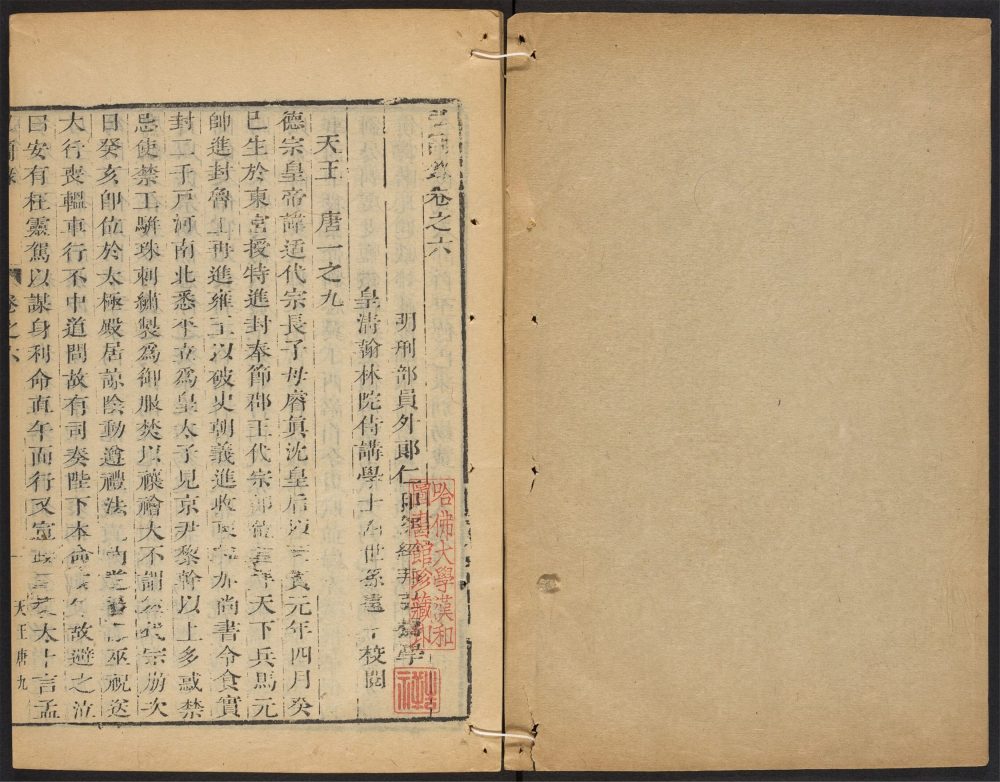 弘簡錄卷之六
明刑部員外郎仁和邵經邦弘齋學
皇清翰林院侍講學士
世孫遠平校閱
天王 唐一之九
德宗皇帝諱适代宗長子母睿真沈皇后
元年四月癸
巳生於東宮授特進封奉節郡王代宗即位
天下兵馬元
帥進封魯王再進雍王以破史朝義進
尚書令食實
封二千戶河南北悉平立為皇太子見京尹黎幹以上多惑禁
忌使禁工駢珠刺繡製為御服焚以禳禬大不謂然代宗崩次
日癸亥即位於太極殿居諒陰動遵禮法
巫祝送
大行喪轀車行不中道問故有司奏陛下本命
故避之泣
曰安有枉靈駕以謀身利命直午而行又
言孟
卷之六
一
天王唐九
哈佛大學漢和
圖書館珍藏印